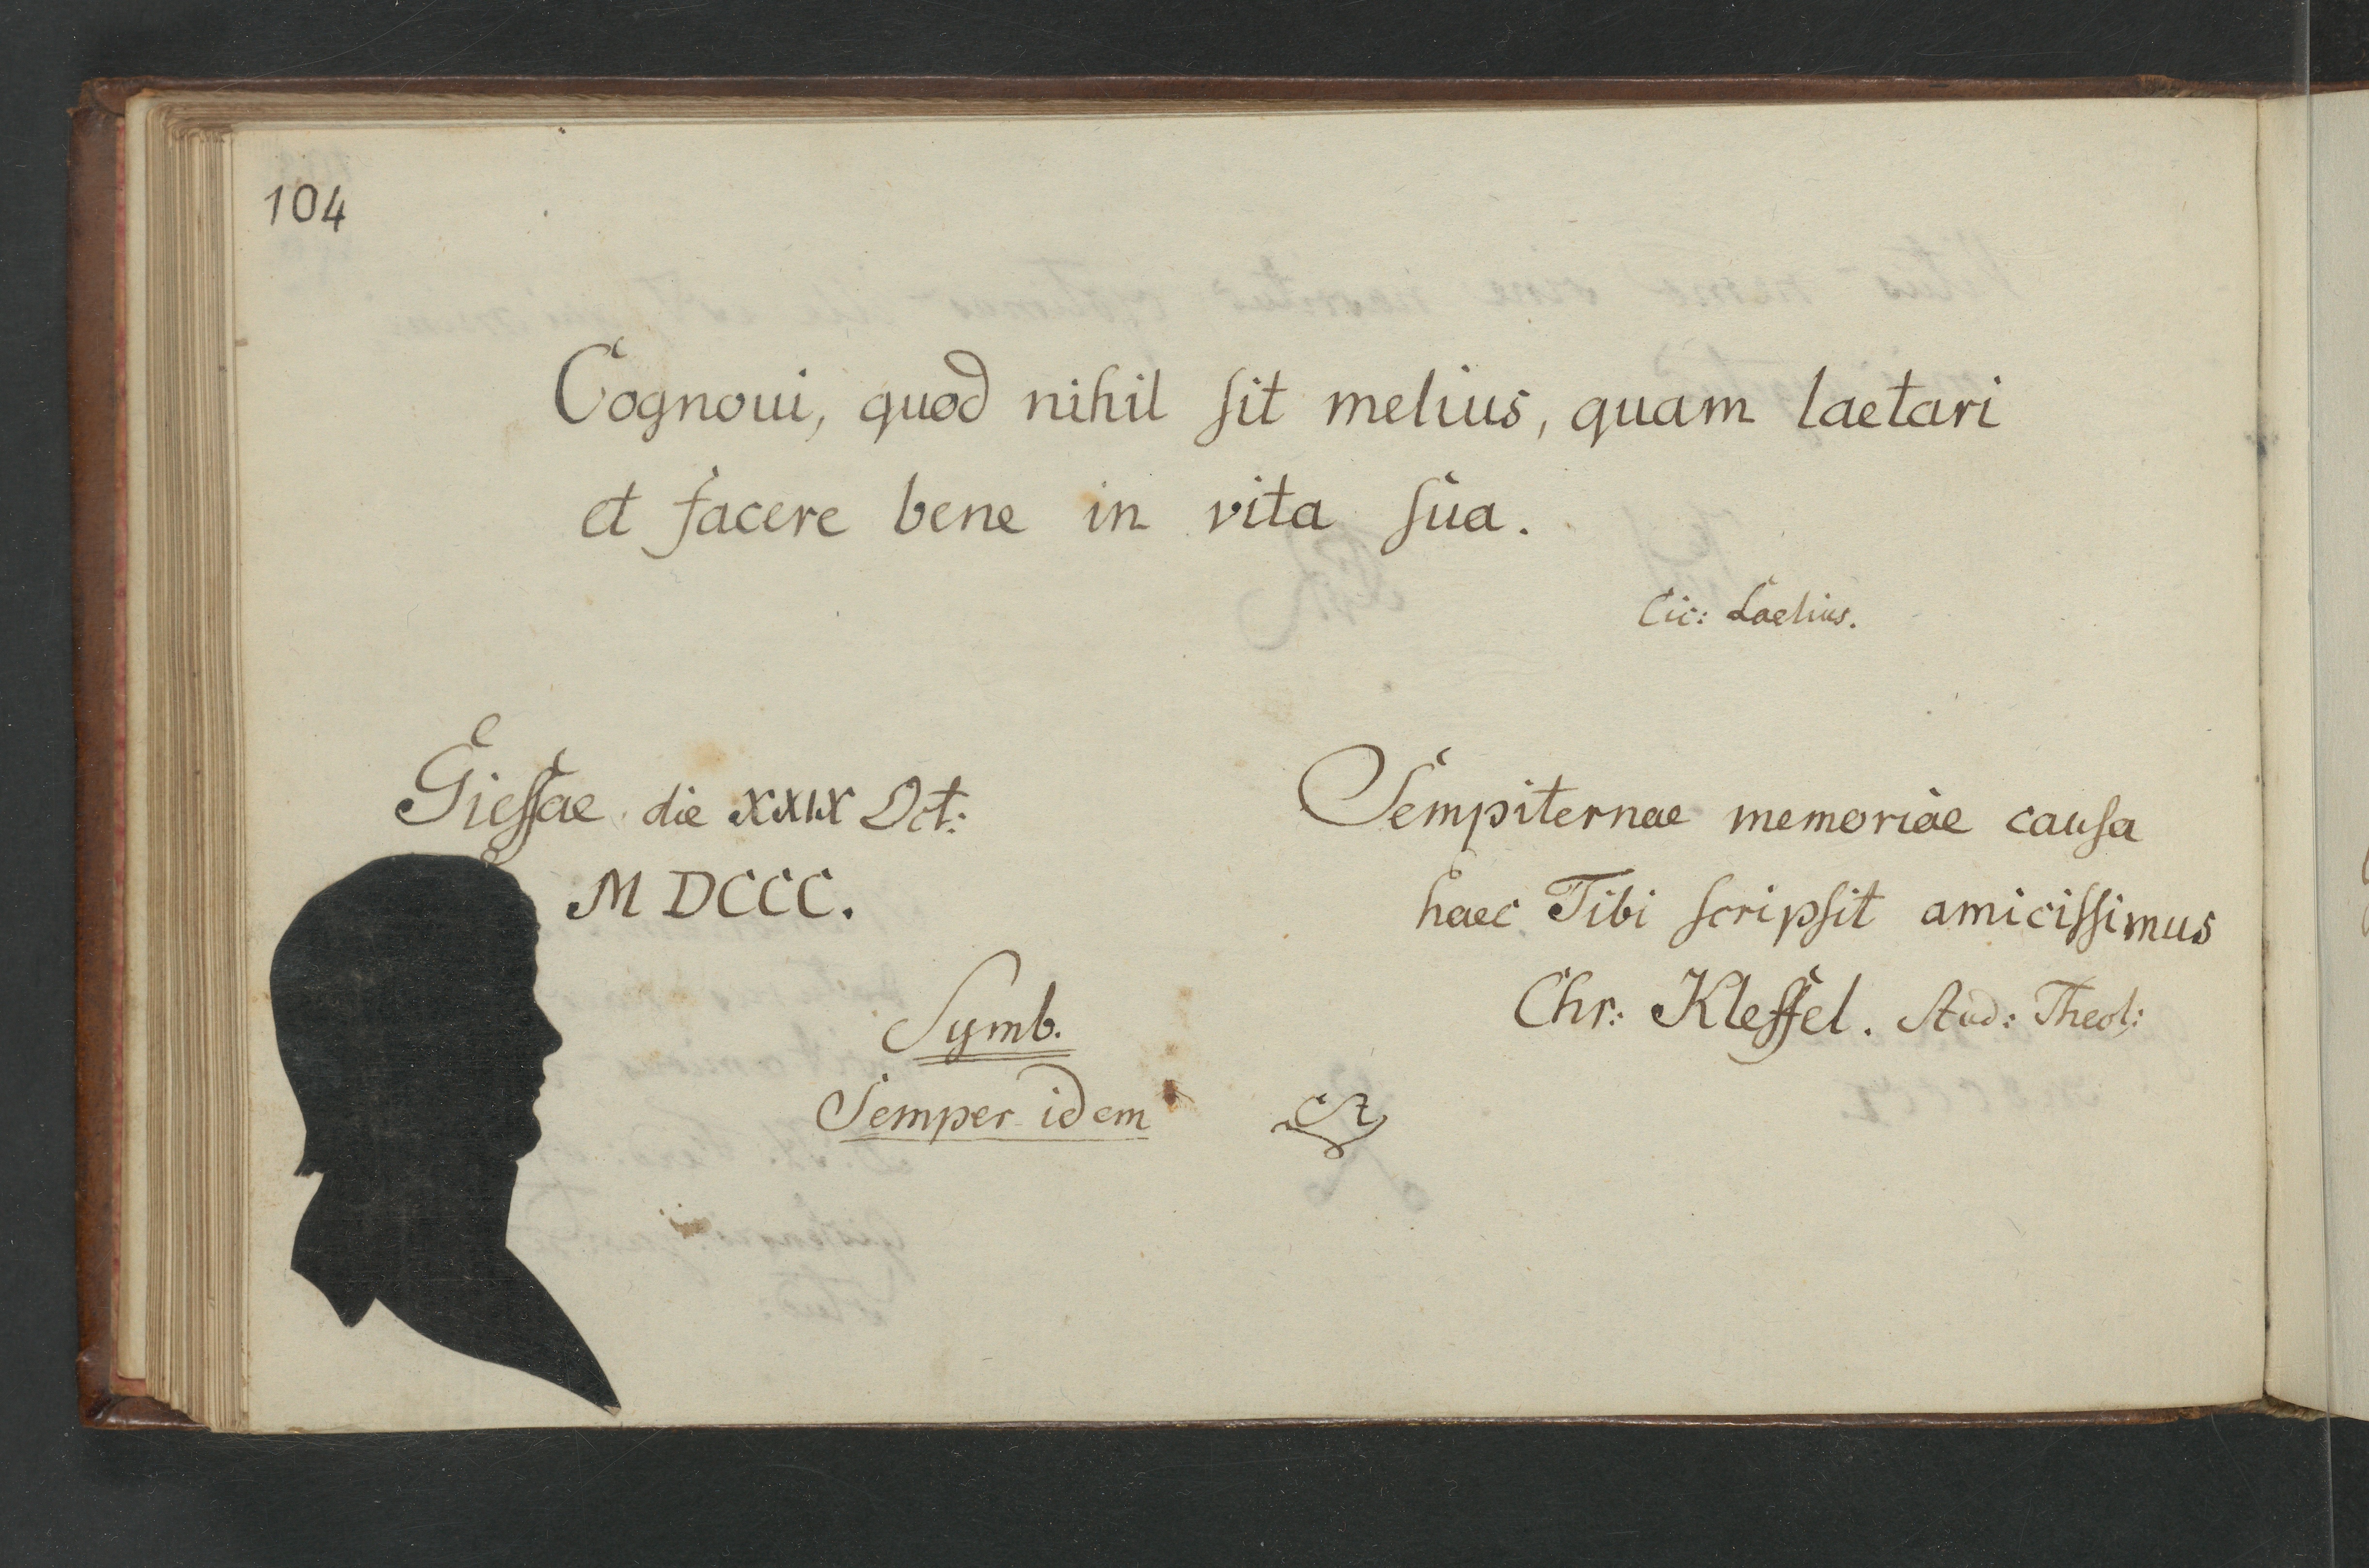 104
Cognoui, quod nihil sit melius, quam laetari
et facere bene in vita sua.
Cic: Laelius.
Giessae die XXIX Oct:
MDCCC.
Sempiternae memoriae causa
haec Tibi scripsit amicissimus
Chr: Kleffel. Stud: Theol:
Symb.
Semper idem